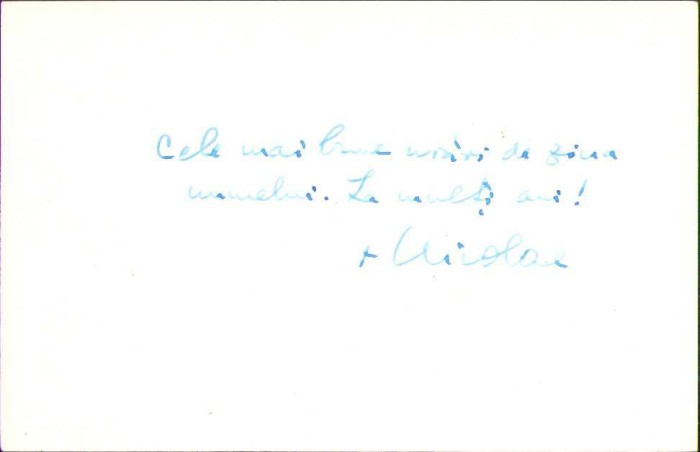 Cele mai bune urări de ziua
numelui. La mulți ani!
+ Nicolae